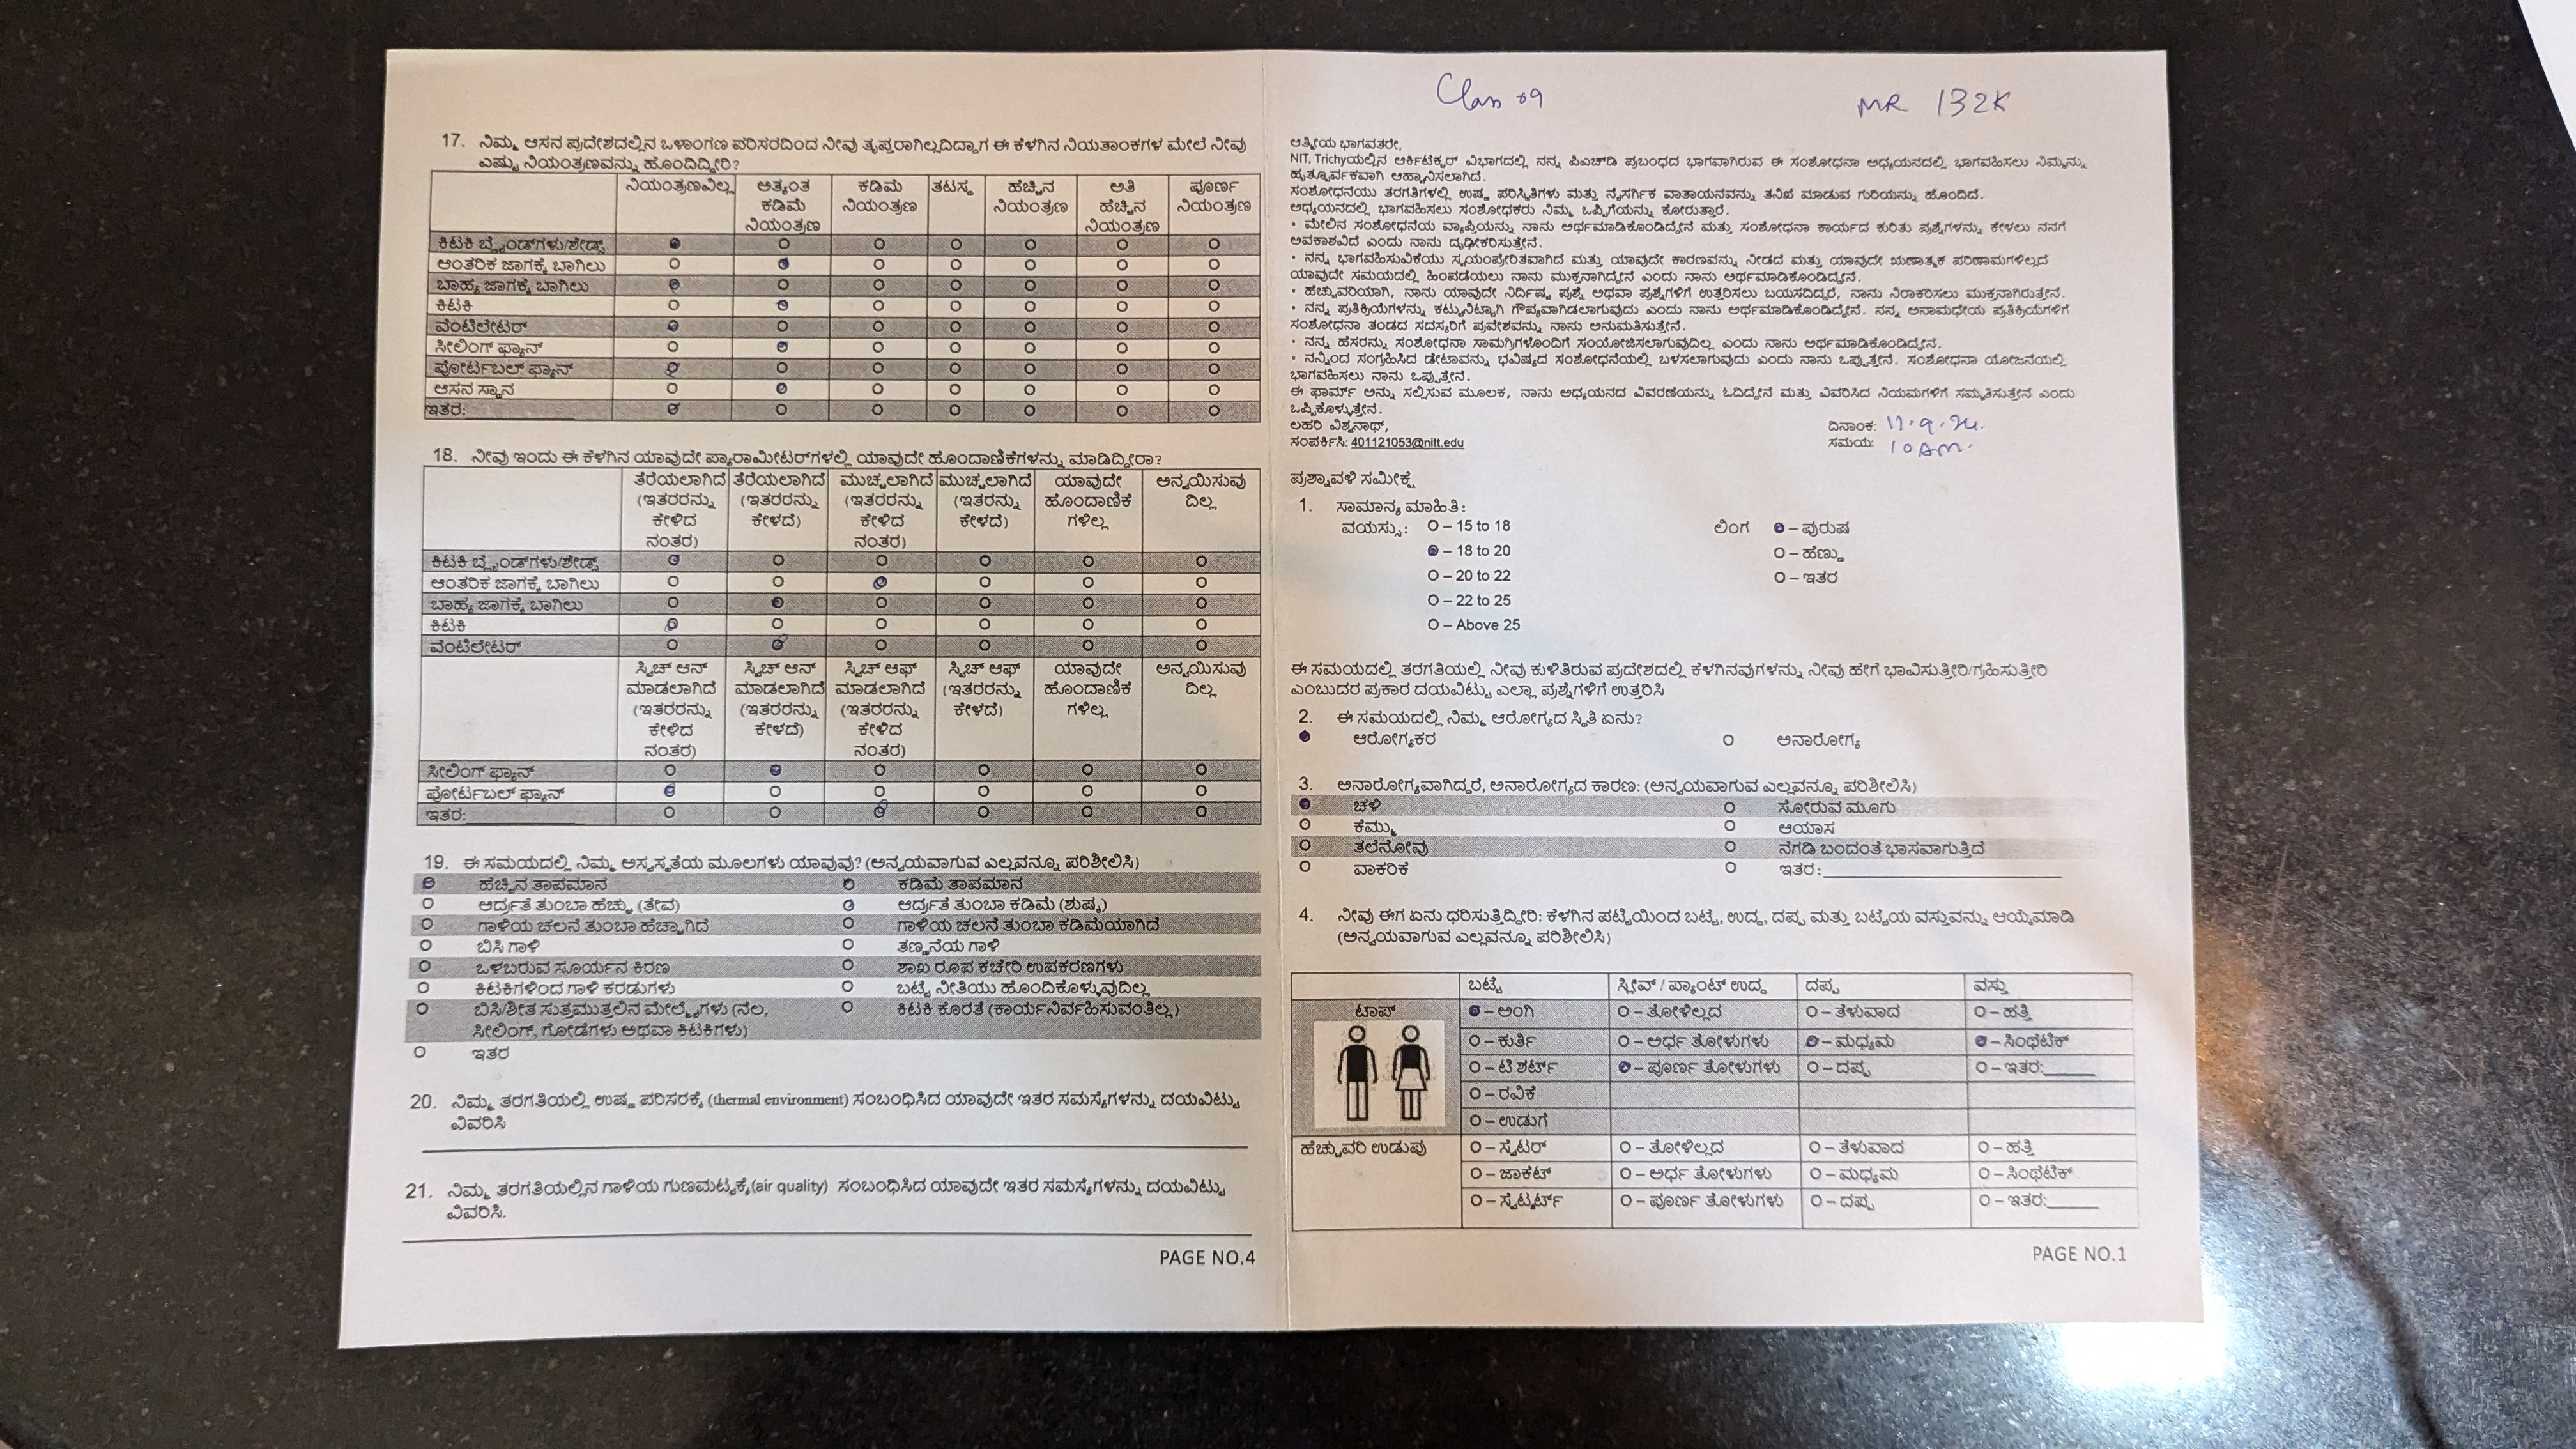 17. ನಿಮ್ಮ ಆಸನ ಪ್ರದೇಶದಲ್ಲಿನ ಒಳಾಂಗಣ ಪರಿಸರದಿಂದ ನೀವು ತೃಪ್ತರಾಗಿಲ್ಲದಿದ್ದಾಗ ಈ ಕೆಳಗಿನ ನಿಯತಾಂಕಗಳ ಮೇಲೆ ನೀವು
ಎಷ್ಟು ನಿಯಂತ್ರಣವನ್ನು ಹೊಂದಿದ್ದೀರಿ?
ನಿಯಂತ್ರಣವಿಲ್ಲ ಅತ್ಯಂತ ಕಡಿಮೆ ನಿಯಂತ್ರಣ ಕಡಿಮೆ ನಿಯಂತ್ರಣ ತಟಸ್ಥ ಹೆಚ್ಚಿನ ನಿಯಂತ್ರಣ ಅತಿ ಹೆಚ್ಚಿನ ನಿಯಂತ್ರಣ ಪೂರ್ಣ ನಿಯಂತ್ರಣ
ಕಿಟಕಿ ಬ್ಲೈಂಡ್‌ಗಳು/ಶೇಡ್ಸ್
ಆಂತರಿಕ ಜಾಗಕ್ಕೆ ಬಾಗಿಲು
ಬಾಹ್ಯ ಜಾಗಕ್ಕೆ ಬಾಗಿಲು
ಕಿಟಕಿ
ವೆಂಟಿಲೇಟರ್
ಸೀಲಿಂಗ್ ಫ್ಯಾನ್
ಪೋರ್ಟಬಲ್ ಫ್ಯಾನ್
ಆಸನ ಸ್ಥಾನ
ಇತರ:
18. ನೀವು ಇಂದು ಈ ಕೆಳಗಿನ ಯಾವುದೇ ಪ್ಯಾರಾಮೀಟರ್‌ಗಳಲ್ಲಿ ಯಾವುದೇ ಹೊಂದಾಣಿಕೆಗಳನ್ನು ಮಾಡಿದ್ದೀರಾ?
ತೆರೆಯಲಾಗಿದೆ (ಇತರರನ್ನು ಕೇಳಿದ ನಂತರ) ತೆರೆಯಲಾಗಿದೆ (ಇತರರನ್ನು ಕೇಳದೆ) ಮುಚ್ಚಲಾಗಿದೆ (ಇತರರನ್ನು ಕೇಳಿದ ನಂತರ) ಮುಚ್ಚಲಾಗಿದೆ (ಇತರನ್ನು ಕೇಳದೆ) ಯಾವುದೇ ಹೊಂದಾಣಿಕೆ ಗಳಿಲ್ಲ ಅನ್ವಯಿಸುವು ದಿಲ್ಲ
ಕಿಟಕಿ ಬ್ಲೈಂಡ್‌ಗಳು/ಶೇಡ್ಸ್
ಆಂತರಿಕ ಜಾಗಕ್ಕೆ ಬಾಗಿಲು
ಬಾಹ್ಯ ಜಾಗಕ್ಕೆ ಬಾಗಿಲು
ಕಿಟಕಿ
ವೆಂಟಿಲೇಟರ್
ಸ್ವಿಚ್ ಆನ್ ಮಾಡಲಾಗಿದೆ (ಇತರರನ್ನು ಕೇಳಿದ ನಂತರ) ಸ್ವಿಚ್ ಆನ್ ಮಾಡಲಾಗಿದೆ (ಇತರರನ್ನು ಕೇಳದೆ) ಸ್ವಿಚ್ ಆಫ್ ಮಾಡಲಾಗಿದೆ (ಇತರರನ್ನು ಕೇಳಿದ ನಂತರ) ಸ್ವಿಚ್ ಆಫ್ (ಇತರರನ್ನು ಕೇಳದೆ) ಯಾವುದೇ ಹೊಂದಾಣಿಕೆ ಗಳಿಲ್ಲ ಅನ್ವಯಿಸುವು ದಿಲ್ಲ
ಸೀಲಿಂಗ್ ಫ್ಯಾನ್
ಪೋರ್ಟಬಲ್ ಫ್ಯಾನ್
ಇತರ:
19. ಈ ಸಮಯದಲ್ಲಿ ನಿಮ್ಮ ಅಸ್ವಸ್ಥತೆಯ ಮೂಲಗಳು ಯಾವುವು? (ಅನ್ವಯವಾಗುವ ಎಲ್ಲವನ್ನೂ ಪರಿಶೀಲಿಸಿ)
ಹೆಚ್ಚಿನ ತಾಪಮಾನ ಕಡಿಮೆ ತಾಪಮಾನ
ಆರ್ದ್ರತೆ ತುಂಬಾ ಹೆಚ್ಚು (ತೇವ) ಆರ್ದ್ರತೆ ತುಂಬಾ ಕಡಿಮೆ (ಶುಷ್ಕ)
ಗಾಳಿಯ ಚಲನೆ ತುಂಬಾ ಹೆಚ್ಚಾಗಿದೆ ಗಾಳಿಯ ಚಲನೆ ತುಂಬಾ ಕಡಿಮೆಯಾಗಿದೆ
ಬಿಸಿ ಗಾಳಿ ತಣ್ಣನೆಯ ಗಾಳಿ
ಒಳಬರುವ ಸೂರ್ಯನ ಕಿರಣ ಶಾಖ ರೂಪ ಕಚೇರಿ ಉಪಕರಣಗಳು
ಕಿಟಕಿಗಳಿಂದ ಗಾಳಿ ಕರಡುಗಳು ಬಟ್ಟೆ ನೀತಿಯು ಹೊಂದಿಕೊಳ್ಳುವುದಿಲ್ಲ
ಬಿಸಿ/ಶೀತ ಸುತ್ತಮುತ್ತಲಿನ ಮೇಲ್ಮೈಗಳು (ನೆಲ, ಕಿಟಕಿ ಕೊರತೆ (ಕಾರ್ಯನಿರ್ವಹಿಸುವಂತಿಲ್ಲ)
ಸೀಲಿಂಗ್, ಗೋಡೆಗಳು ಅಥವಾ ಕಿಟಕಿಗಳು)
ಇತರ
20. ನಿಮ್ಮ ತರಗತಿಯಲ್ಲಿ ಉಷ್ಣ ಪರಿಸರಕ್ಕೆ (thermal environment) ಸಂಬಂಧಿಸಿದ ಯಾವುದೇ ಇತರ ಸಮಸ್ಯೆಗಳನ್ನು ದಯವಿಟ್ಟು
ವಿವರಿಸಿ
21. ನಿಮ್ಮ ತರಗತಿಯಲ್ಲಿನ ಗಾಳಿಯ ಗುಣಮಟ್ಟಕ್ಕೆ(air quality) ಸಂಬಂಧಿಸಿದ ಯಾವುದೇ ಇತರ ಸಮಸ್ಯೆಗಳನ್ನು ದಯವಿಟ್ಟು
ವಿವರಿಸಿ.
PAGE NO.4
Class 09 MR 132K
ಆತ್ಮೀಯ ಭಾಗವತರೇ,
NIT, Trichyಯಲ್ಲಿನ ಆರ್ಕಿಟೆಕ್ಚರ್ ವಿಭಾಗದಲ್ಲಿ ನನ್ನ ಪಿಎಚ್‌ಡಿ ಪ್ರಬಂಧದ ಭಾಗವಾಗಿರುವ ಈ ಸಂಶೋಧನಾ ಅಧ್ಯಯನದಲ್ಲಿ ಭಾಗವಹಿಸಲು ನಿಮ್ಮನ್ನು
ಹೃತ್ಪೂರ್ವಕವಾಗಿ ಆಹ್ವಾನಿಸಲಾಗಿದೆ.
ಸಂಶೋಧನೆಯು ತರಗತಿಗಳಲ್ಲಿ ಉಷ್ಣ ಪರಿಸ್ಥಿತಿಗಳು ಮತ್ತು ನೈಸರ್ಗಿಕ ವಾತಾಯನವನ್ನು ತನಿಖೆ ಮಾಡುವ ಗುರಿಯನ್ನು ಹೊಂದಿದೆ.
ಅಧ್ಯಯನದಲ್ಲಿ ಭಾಗವಹಿಸಲು ಸಂಶೋಧಕರು ನಿಮ್ಮ ಒಪ್ಪಿಗೆಯನ್ನು ಕೋರುತ್ತಾರೆ.
• ಮೇಲಿನ ಸಂಶೋಧನೆಯ ವ್ಯಾಪ್ತಿಯನ್ನು ನಾನು ಅರ್ಥಮಾಡಿಕೊಂಡಿದ್ದೇನೆ ಮತ್ತು ಸಂಶೋಧನಾ ಕಾರ್ಯದ ಕುರಿತು ಪ್ರಶ್ನೆಗಳನ್ನು ಕೇಳಲು ನನಗೆ
ಅವಕಾಶವಿದೆ ಎಂದು ನಾನು ದೃಢೀಕರಿಸುತ್ತೇನೆ.
• ನನ್ನ ಭಾಗವಹಿಸುವಿಕೆಯು ಸ್ವಯಂಪ್ರೇರಿತವಾಗಿದೆ ಮತ್ತು ಯಾವುದೇ ಕಾರಣವನ್ನು ನೀಡದೆ ಮತ್ತು ಯಾವುದೇ ಋಣಾತ್ಮಕ ಪರಿಣಾಮಗಳಿಲ್ಲದೆ
ಯಾವುದೇ ಸಮಯದಲ್ಲಿ ಹಿಂಪಡೆಯಲು ನಾನು ಮುಕ್ತನಾಗಿದ್ದೇನೆ ಎಂದು ನಾನು ಅರ್ಥಮಾಡಿಕೊಂಡಿದ್ದೇನೆ.
• ಹೆಚ್ಚುವರಿಯಾಗಿ, ನಾನು ಯಾವುದೇ ನಿರ್ದಿಷ್ಟ ಪ್ರಶ್ನೆ ಅಥವಾ ಪ್ರಶ್ನೆಗಳಿಗೆ ಉತ್ತರಿಸಲು ಬಯಸದಿದ್ದರೆ, ನಾನು ನಿರಾಕರಿಸಲು ಮುಕ್ತನಾಗಿರುತ್ತೇನೆ.
• ನನ್ನ ಪ್ರತಿಕ್ರಿಯೆಗಳನ್ನು ಕಟ್ಟುನಿಟ್ಟಾಗಿ ಗೌಪ್ಯವಾಗಿಡಲಾಗುವುದು ಎಂದು ನಾನು ಅರ್ಥಮಾಡಿಕೊಂಡಿದ್ದೇನೆ. ನನ್ನ ಅನಾಮಧೇಯ ಪ್ರತಿಕ್ರಿಯೆಗಳಿಗೆ
ಸಂಶೋಧನಾ ತಂಡದ ಸದಸ್ಯರಿಗೆ ಪ್ರವೇಶವನ್ನು ನಾನು ಅನುಮತಿಸುತ್ತೇನೆ.
• ನನ್ನ ಹೆಸರನ್ನು ಸಂಶೋಧನಾ ಸಾಮಗ್ರಿಗಳೊಂದಿಗೆ ಸಂಯೋಜಿಸಲಾಗುವುದಿಲ್ಲ ಎಂದು ನಾನು ಅರ್ಥಮಾಡಿಕೊಂಡಿದ್ದೇನೆ.
• ನನ್ನಿಂದ ಸಂಗ್ರಹಿಸಿದ ಡೇಟಾವನ್ನು ಭವಿಷ್ಯದ ಸಂಶೋಧನೆಯಲ್ಲಿ ಬಳಸಲಾಗುವುದು ಎಂದು ನಾನು ಒಪ್ಪುತ್ತೇನೆ. ಸಂಶೋಧನಾ ಯೋಜನೆಯಲ್ಲಿ
ಭಾಗವಹಿಸಲು ನಾನು ಒಪ್ಪುತ್ತೇನೆ.
ಈ ಫಾರ್ಮ್ ಅನ್ನು ಸಲ್ಲಿಸುವ ಮೂಲಕ, ನಾನು ಅಧ್ಯಯನದ ವಿವರಣೆಯನ್ನು ಓದಿದ್ದೇನೆ ಮತ್ತು ವಿವರಿಸಿದ ನಿಯಮಗಳಿಗೆ ಸಮ್ಮತಿಸುತ್ತೇನೆ ಎಂದು
ಒಪ್ಪಿಕೊಳ್ಳುತ್ತೇನೆ.
ಲಹರಿ ವಿಶ್ವನಾಥ್, ದಿನಾಂಕ: 11.9.24.
ಸಂಪರ್ಕಿಸಿ: 401121053@nitt.edu ಸಮಯ: 10 AM.
ಪ್ರಶ್ನಾವಳಿ ಸಮೀಕ್ಷೆ
1. ಸಾಮಾನ್ಯ ಮಾಹಿತಿ:
ವಯಸ್ಸು: – 15 to 18 ಲಿಂಗ – ಪುರುಷ
– 18 to 20 – ಹೆಣ್ಣು
– 20 to 22 – ಇತರ
– 22 to 25
– Above 25
ಈ ಸಮಯದಲ್ಲಿ ತರಗತಿಯಲ್ಲಿ ನೀವು ಕುಳಿತಿರುವ ಪ್ರದೇಶದಲ್ಲಿ ಕೆಳಗಿನವುಗಳನ್ನು ನೀವು ಹೇಗೆ ಭಾವಿಸುತ್ತೀರಿ/ಗ್ರಹಿಸುತ್ತೀರಿ
ಎಂಬುದರ ಪ್ರಕಾರ ದಯವಿಟ್ಟು ಎಲ್ಲಾ ಪ್ರಶ್ನೆಗಳಿಗೆ ಉತ್ತರಿಸಿ
2. ಈ ಸಮಯದಲ್ಲಿ ನಿಮ್ಮ ಆರೋಗ್ಯದ ಸ್ಥಿತಿ ಏನು?
ಆರೋಗ್ಯಕರ ಅನಾರೋಗ್ಯ
3. ಅನಾರೋಗ್ಯವಾಗಿದ್ದರೆ, ಅನಾರೋಗ್ಯದ ಕಾರಣ: (ಅನ್ವಯವಾಗುವ ಎಲ್ಲವನ್ನೂ ಪರಿಶೀಲಿಸಿ)
ಚಳಿ ಸೋರುವ ಮೂಗು
ಕೆಮ್ಮು ಆಯಾಸ
ತಲೆನೋವು ನೆಗಡಿ ಬಂದಂತೆ ಭಾಸವಾಗುತ್ತಿದೆ
ವಾಕರಿಕೆ ಇತರ:
4. ನೀವು ಈಗ ಏನು ಧರಿಸುತ್ತಿದ್ದೀರಿ: ಕೆಳಗಿನ ಪಟ್ಟಿಯಿಂದ ಬಟ್ಟೆ, ಉದ್ದ, ದಪ್ಪ ಮತ್ತು ಬಟ್ಟೆಯ ವಸ್ತುವನ್ನು ಆಯ್ಕೆಮಾಡಿ
(ಅನ್ವಯವಾಗುವ ಎಲ್ಲವನ್ನೂ ಪರಿಶೀಲಿಸಿ)
ಬಟ್ಟೆ ಸ್ಲೀವ್ / ಪ್ಯಾಂಟ್ ಉದ್ದ ದಪ್ಪ ವಸ್ತು
ಟಾಪ್ – ಅಂಗಿ – ತೋಳಿಲ್ಲದ – ತೆಳುವಾದ – ಹತ್ತಿ
– ಕುರ್ತಿ – ಅರ್ಧ ತೋಳುಗಳು – ಮಧ್ಯಮ – ಸಿಂಥೆಟಿಕ್
– ಟಿ ಶರ್ಟ್ – ಪೂರ್ಣ ತೋಳುಗಳು – ದಪ್ಪ – ಇತರ:
– ರವಿಕೆ
– ಉಡುಗೆ
ಹೆಚ್ಚುವರಿ ಉಡುಪು – ಸ್ವೆಟರ್ – ತೋಳಿಲ್ಲದ – ತೆಳುವಾದ – ಹತ್ತಿ
– ಜಾಕೆಟ್ – ಅರ್ಧ ತೋಳುಗಳು – ಮಧ್ಯಮ – ಸಿಂಥೆಟಿಕ್
– ಸ್ವೆಟ್ಶರ್ಟ್ – ಪೂರ್ಣ ತೋಳುಗಳು – ದಪ್ಪ – ಇತರ:
PAGE NO.1